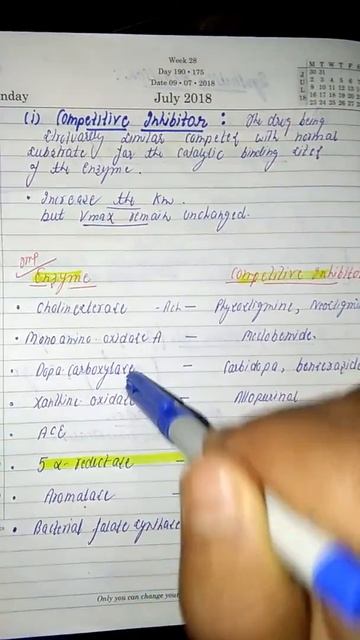 Week 28
Day 190 • 175
Date 09 • 07 • 2018
nday
July 2018
M T W T F
(i) Competitive Inhibitor : The drug being
similar competes with normal
substrate for the catalytic binding sites
of the enzyme.
• Increase the Km.
but Vmax remain unchanged.
Imp
Enzyme
Competitive Inhibitor
• Cholinesterase - Ach — Physostigmine, Neostigmi
• Monoamino oxidase A — Moclobemide.
• Dopa carboxylase — Carbidopa, benserazid
• Xanthine oxidase — Allopurinol
• ACE
• 5 α- reductase —
• Aromatase —
• Bacterial folate synthase
Only you can change your